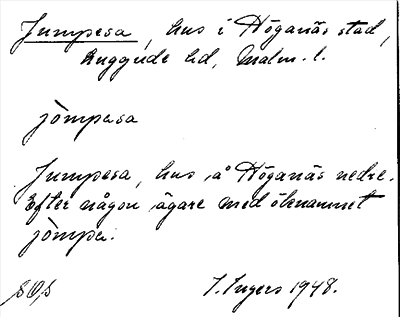 Jumpesa, hus i Höganäs stad,
Luggude hd, Malm. l.
jòmpasa
Jumpesa, hus å Höganäs nedre.
Efter någon ägare med öknamnet
jòmpa.
SOS I. Ingers 1948.